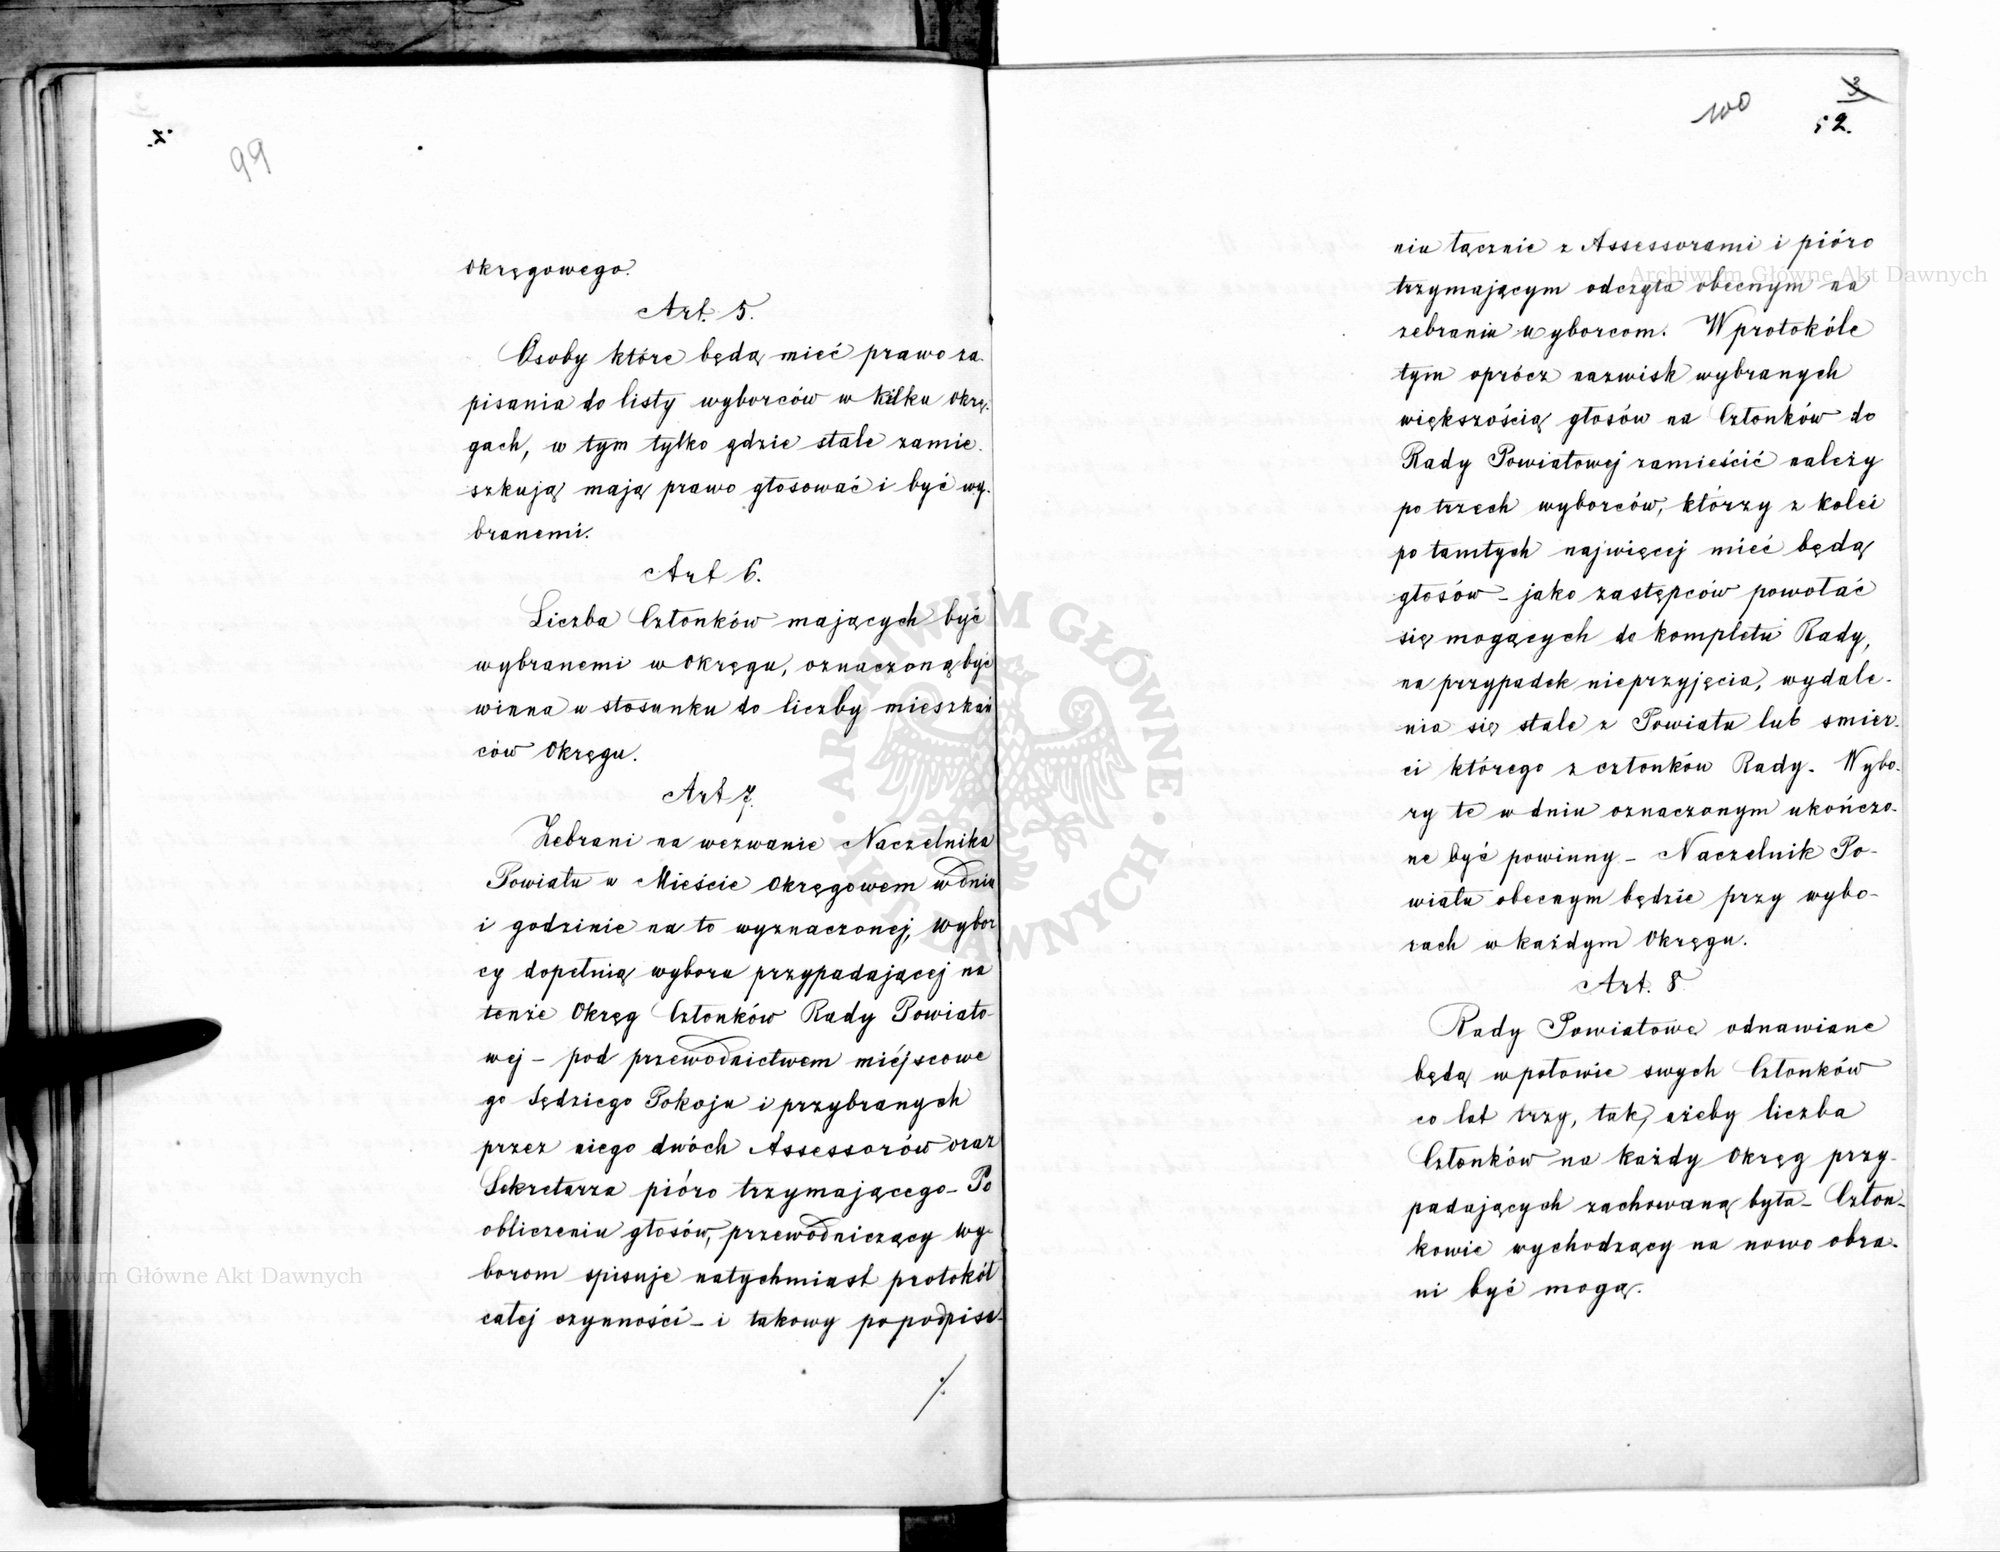 99
Okręgowego.
Art. 5.
Osoby które będą mieć prawo za-
pisania do listy wyborców w kilku Okrę-
gach, w tym tylko gdzie stale zamie-
szkują mają prawo głosować i być wy-
branemi.
Art 6.
Liczba Członków mających być
wybranemi w Okręgu, oznaczoną być
winna w stosunku do liczby mieszkań
ców Okręgu.
Art 7.
Zebrani na wezwanie Naczelnika
Powiatu w Mieście Okręgowem w dniu
i godzinie na to wyznaczonej, wybor
cy dopełnią wyboru przypadającej na
tenże Okręg Członków Rady Powiato-
wej – pod przewodnictwem miéjscowe
go Sędziego Pokoju i przybranych
przez niego dwóch Assessorów oraz
Sekretarza pióro trzymającego – Po
obliczeniu głosów, przewodniczący wy-
borom spisuje natychmiast protokół
całej czynności – i takowy po podpisa-
./.
100
3
52.
niu łącznie z Assessorami i pióro
trzymającym odczyta obecnym na
zebraniu wyborcom. W protokóle
tym oprócz nazwisk wybranych
większością głosów na Członków do
Rady Powiatowej zamieścić należy
po trzech wyborców, którzy z kolei
po tamtych najwięcej mieć będą
głosów – jako zastępców powołać
się mogących do kompletu Rady,
na przypadek nieprzyjęcia, wydale-
nia się stale z Powiatu lub smier-
ci którego z członków Rady. Wybo-
ry te w dniu oznaczonym ukończo-
ne być powinny – Naczelnik Po-
wiatu obecnym będzie przy wybo-
rach w każdym Okręgu.
Art. 8.
Rady Powiatowe odnawiane
będą w połowie swych Członków
co lat trzy, tak, ażeby liczba
Członków na każdy Okręg przy-
padających zachowaną była – Człon-
kowie wychodzący na nowo obra-
ni być mogą.
Archiwum Główne Akt Dawnych
Archiwum Główne Akt Dawnych